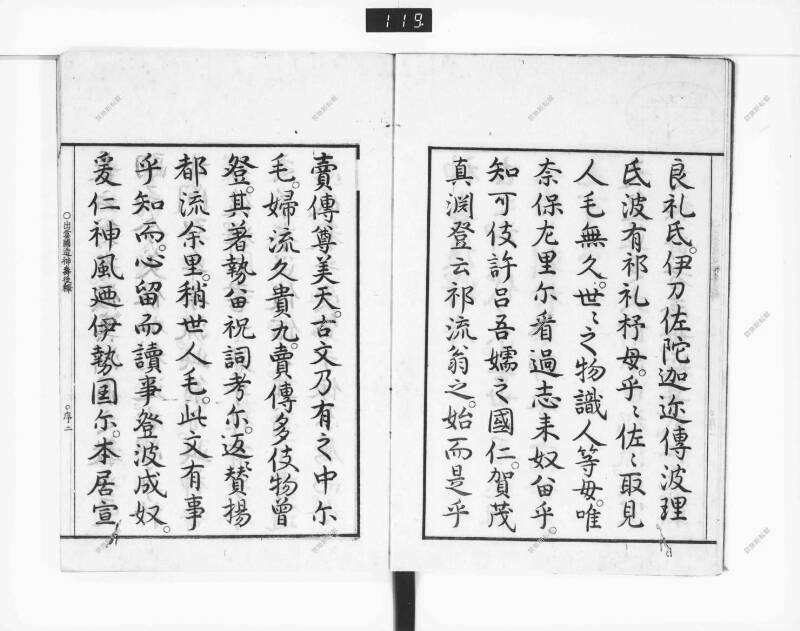 119.
良礼氐。伊刀佐陀迦迩傳波理
氐波有祁礼杼毋。乎〻佐〻取見
人毛無久。世〻之物識人等毋。唯
奈保尤里尓看過志来奴留乎。
知可伎許呂吾嬬之國仁。賀茂
真淵登云祁流翁之。始而是乎
賣傳尊美天。古文乃有之中尓
毛。婦流久貴九。賣傳多伎物曽
登。其著勢留祝詞考尓。返〻賛揚
都流余里。稍世人毛。此文有事
乎知而。心留而讀事登波成奴。
爰仁神風廼伊勢国尓。本居宣
○出雲國造神壽後釋
○序二